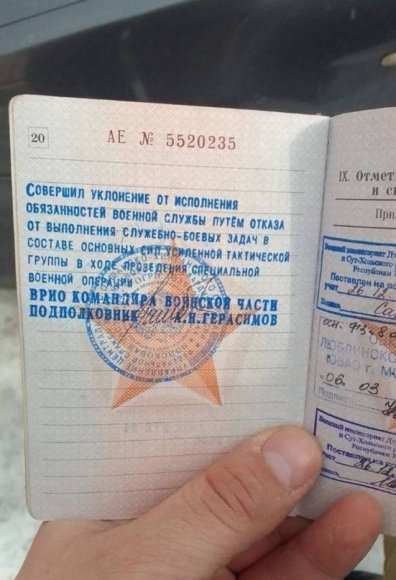 20
АЕ № 5520235
СОВЕРШИЛ УКЛОНЕНИЕ ОТ ИСПОЛНЕНИЯ
ОБЯЗАННОСТЕЙ ВОЕННОЙ СЛУЖБЫ ПУТЁМ ОТКАЗА
ОТ ВЫПОЛНЕНИЯ СЛУЖЕБНО-БОЕВЫХ ЗАДАЧ В
СОСТАВЕ ОСНОВНЫХ СИЛ УСИЛЕННОЙ ТАКТИЧЕСКОЙ
ГРУППЫ В ХОДЕ ПРОВЕДЕНИЯ СПЕЦИАЛЬНОЙ
ВОЕННОЙ ОПЕРАЦИИ
ВРИО КОМАНДИРА ВОИНСКОЙ ЧАСТИ
ПОДПОЛКОВНИК А.Н.ГЕРАСИМОВ
IX. Отмет
и сн
При
Военный комиссариат Дз
и Сут-Хольского
Республики
Поставлен на
учет 26.12
Подпись
ЛЮБЛИНСКО
ЮВАО г. МО
06. 03
Подпись
Военный комиссариат Дз
и Сут-Хольского
Республики
Поставлен на
учет 26.12